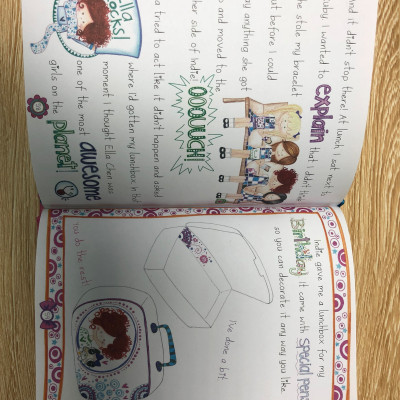 And it didn't stop there! At lunch I sat next
Ruby. I wanted to explain that I didn't
she stole my bracelet
but before I could
say anything she got
up and moved to the
other side of Indie!
OOOUUCH!
Ella tried to act like it didn't happen and asked
where I'd gotten my lunchbox in that
moment I thought Ella Chen was
one of the most awesome
girls on the planet!
Ella
Rocks!
Indie gave me a lunchbox for my
Birthday. It came with special pens
so you can decorate it any way you like.
I've done a bit.
You do the rest!